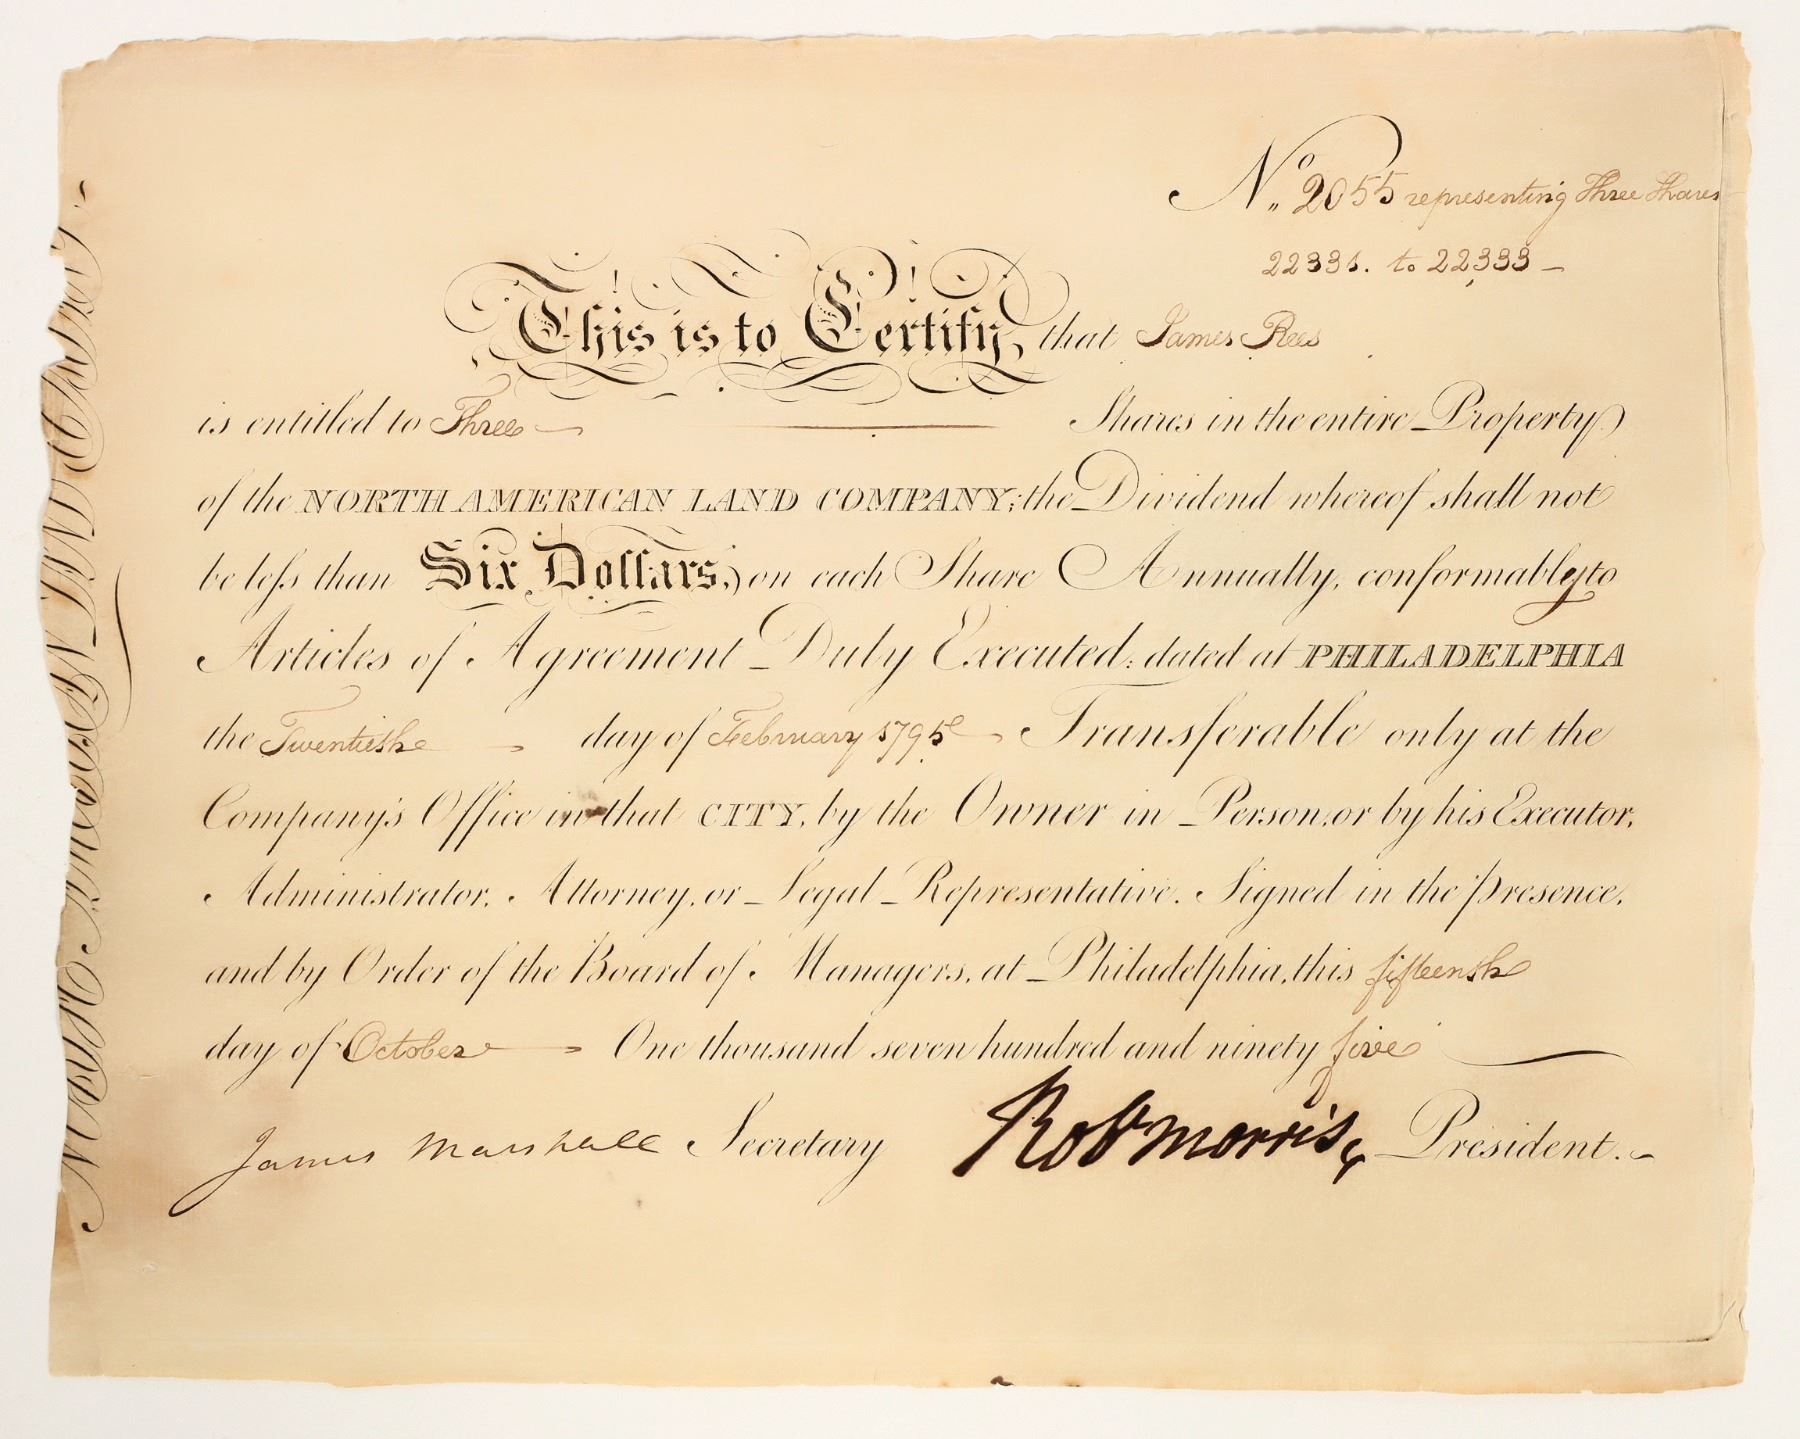 No. 2055 representing Three Shares
22331. to 22,333 –
This is to Certify, that James Rees
is entitled to Three Shares in the entire Property
of the NORTH AMERICAN LAND COMPANY; the Dividend whereof shall not
be less than Six Dollars, on each Share Annually, conformably to
Articles of Agreement Duly Executed: dated at PHILADELPHIA
the Twentieth day of February 1795 Transferable only at the
Company's Office in that CITY, by the Owner in Person, or by his Executor,
Administrator, Attorney, or Legal Representative. Signed in the presence,
and by Order of the Board of Managers, at Philadelphia, this fifteenth
day of October One thousand seven hundred and ninety five
James Marshall Secretary Rob Morris, President.